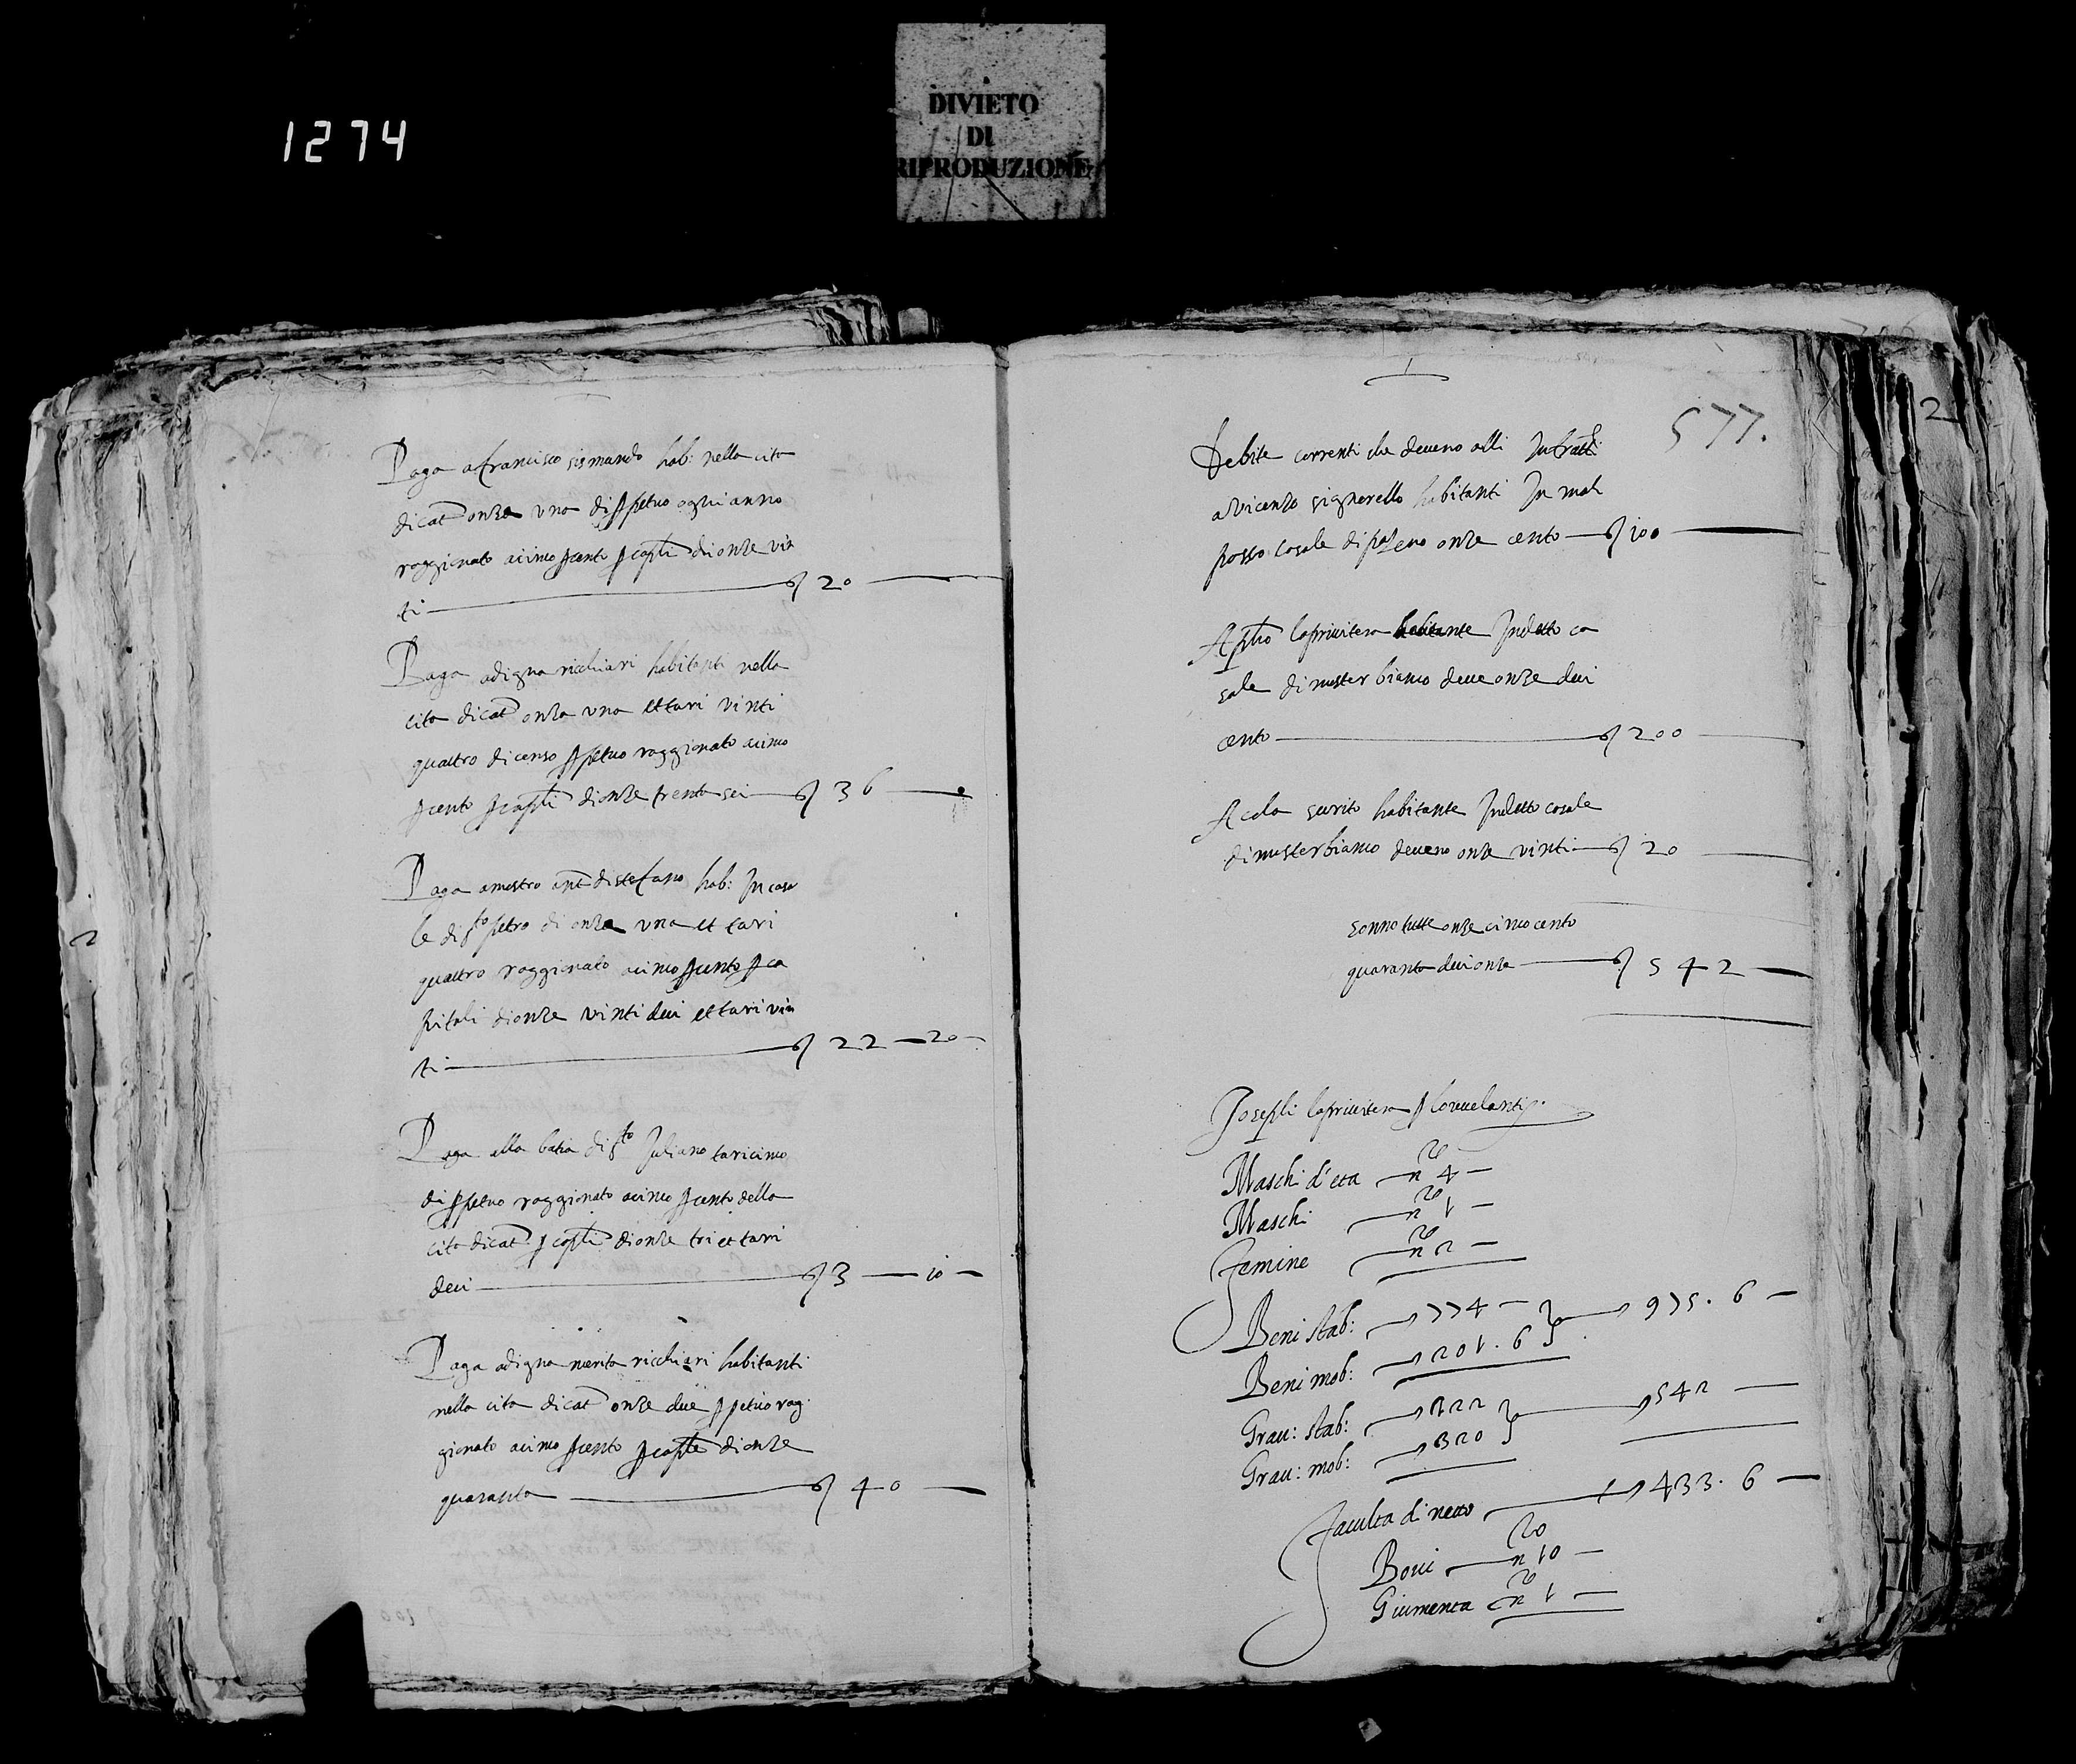 1274
DIVIETO
DI
RIPRODUZIONE
Paga a francisco sismando hab: nella cita
di cat onza una di ppetuo ogni anno
raggionato a cinco p cento p capli di onze vin
ti — 20 —
Paga a digna ricchiari habitanti nella
cita di cat onza una et tari vinti
quattro di censo ppetuo raggionato a cinco
p cento p capli di onze trenta sei — 36 —
Paga a mastro ant di stefano hab: In casa
le di sto petro di onza una et tari
quattro raggionato a cinco p cento p ca
pitali di onze vinti dui et tari vin
ti — 22 — 20 —
Paga alla batia di sto Juliano tari cinco
di ppetuo raggionato a cinco p cento della
cita di cat p capli di onze tri et tari
deci — 3 — 10 —
Paga a digna merita ricchiari habitanti
nella cita di cat onze due ppetuo rag
gionato a cinco p cento p caple di onze
quaranta — 40 —
577.
Debite correnti che deveno alli Infratti
a vicenzo signorello habitanti In mal
passo casale di onze cento — 100 —
A laprivitera habitante In detto ca
sale di muster bianco deve onze dui
cento — 200 —
A cola surito habitante In detto casale
di musterbianco deveno onze vinti — 20 —
sonno tutte onze cinco cento
quaranta dui onze — 542 —
Joseph laprivitera p
Maschi d'eta — n 4 —
Maschi — n 1 —
Femine — n 2 —
Beni stab: — 774 — 975. 6 —
Beni mob: — 201. 6
Grav: stab: — 222 — 542 —
Grav: mob: — 320
Faculta di netto — 433. 6 —
Bovi — n 10 —
Giumenta — n 1 —